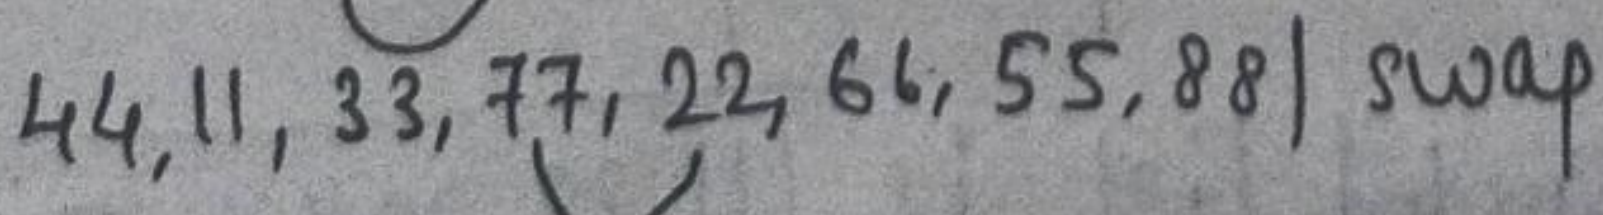 44, 11, 33, 77, 22, 66, 55, 88| swap